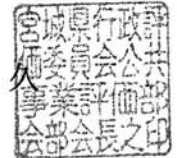 宮城県行政評
価委員会公共
久
事業評価部
会部会長之印